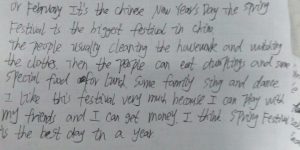 or February It's the chinese New Year's Day the Spring
Festival is the biggest festival in china
The people usually cleaning the housework and watching
the clothes then the people can eat dumplings and some
special food for lunch some family sing and dance
I like this festival very much because I can play with
my friends and I can get money I think Spring Festival
is the best day in a year